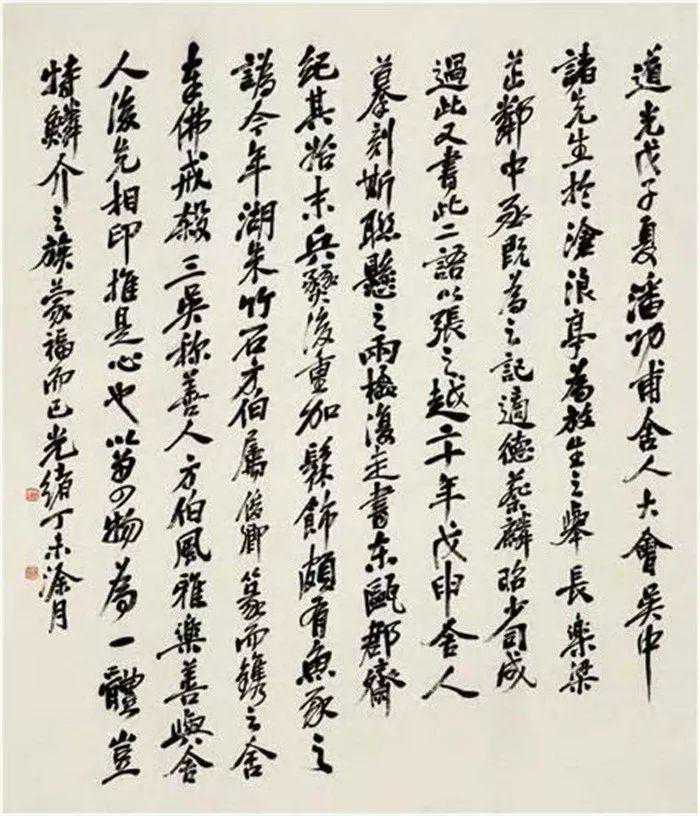 道光戊子夏潘功甫舍人大會吳中
諸先生於滄浪亭為放生之舉長樂梁
茝鄰中丞既為之記適德蔡麟昭少司成
過此又書此二語以張之越二十年戊申舍人
摹刻斯聯懸之兩楹復走書東甌郡齋
紀其始末兵燹後重加髹飾頗有魚豕之
譌今年湖朱竹石方伯屬俊卿篆而鐫之舍
奉佛戒殺三吳稱善人方伯風雅樂善與舍
人後先相印推是心也以萬物為一體豈
特鱗介之族蒙福而已光緒丁未涂月